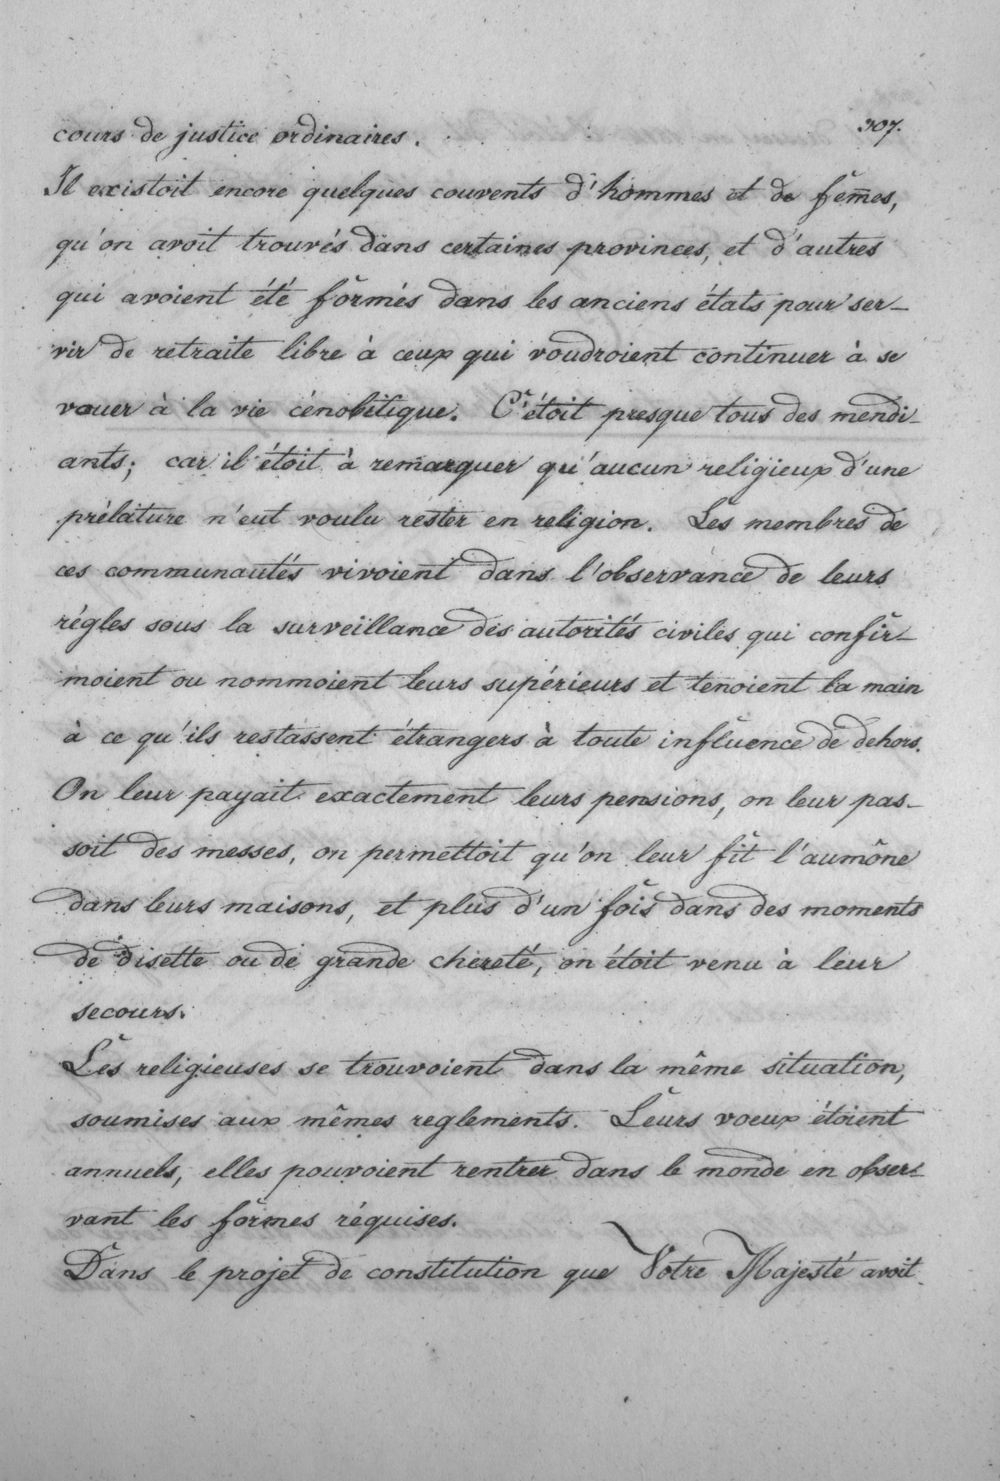 307.
cours de justice ordinaires.
Il existoit encore quelques couvents d'hommes et de fem̄es,
qu'on avoit trouvés dans certaines provinces, et d'autres
qui avoient été formés dans les anciens états pour ser-
vir de retraite libre à ceux qui voudroient continuer à se
vouer à la vie cénobitique. C'étoit presque tous des mendi-
ants; car il étoit à remarquer qu'aucun religieux d'une
prélature n'eut voulu rester en religion. Les membres de
ces communautés vivoient dans l'observance de leurs
régles sous la surveillance des autorités civiles qui confir-
moient ou nommoient leurs supérieurs et tenoient la main
à ce qu'ils restassent étrangers à toute influence de dehors.
On leur payait exactement leurs pensions, on leur pas-
soit des messes, on permettoit qu'on leur fit l'aumône
dans leurs maisons, et plus d'un fois dans des moments
de disette ou de grande chereté, on étoit venu à leur
secours.
Les religieuses se trouvoient dans la même situation,
soumises aux mêmes reglements. Leurs voeux étoient
annuels, elles pouvoient rentrer dans le monde en obser-
vant les formes réquises.
Dans le projet de constitution que Votre Majesté avoit